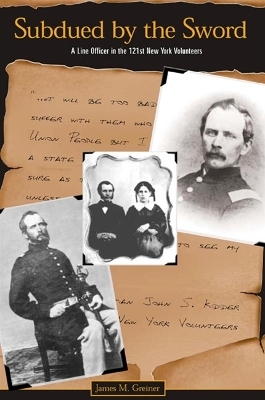 Subdued by the Sword
A Line Officer in the 121st New York Volunteers
"...OT WILL BE TOO BAD
SUFFER WITH THEM WHO
UNION PEOPLE BUT I
A STATE
SURE AS
UNLESS
TO SEE MY
AN JOHN S. KIDDER
NEW YORK VOLUNTEERS
James M. Greiner